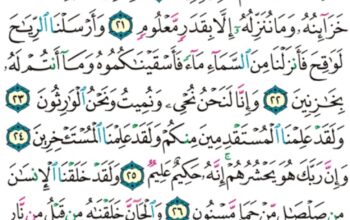 خَزَآئِنُهُۥ وَمَا نُنَزِّلُهُۥٓ إِلَّا بِقَدَرٖ مَّعۡلُومٖ ٢١ وَأَرۡسَلۡنَا ٱلرِّيَٰحَ
لَوَٰقِحَ فَأَنزَلۡنَا مِنَ ٱلسَّمَآءِ مَآءٗ فَأَسۡقَيۡنَٰكُمُوهُ وَمَآ أَنتُمۡ لَهُۥ
بِخَٰزِنِينَ ٢٢ وَإِنَّا لَنَحۡنُ نُحۡيِۦ وَنُمِيتُ وَنَحۡنُ ٱلۡوَٰرِثُونَ ٢٣
وَلَقَدۡ عَلِمۡنَا ٱلۡمُسۡتَقۡدِمِينَ مِنكُمۡ وَلَقَدۡ عَلِمۡنَا ٱلۡمُسۡتَـٔۡخِرِينَ ٢٤
وَإِنَّ رَبَّكَ هُوَ يَحۡشُرُهُمۡۚ إِنَّهُۥ حَكِيمٌ عَلِيمٞ ٢٥ وَلَقَدۡ خَلَقۡنَا ٱلۡإِنسَٰنَ
مِن صَلۡصَٰلٖ مِّنۡ حَمَإٖ مَّسۡنُونٖ ٢٦ وَٱلۡجَآنَّ خَلَقۡنَٰهُ مِن قَبۡلُ مِن نَّارِ